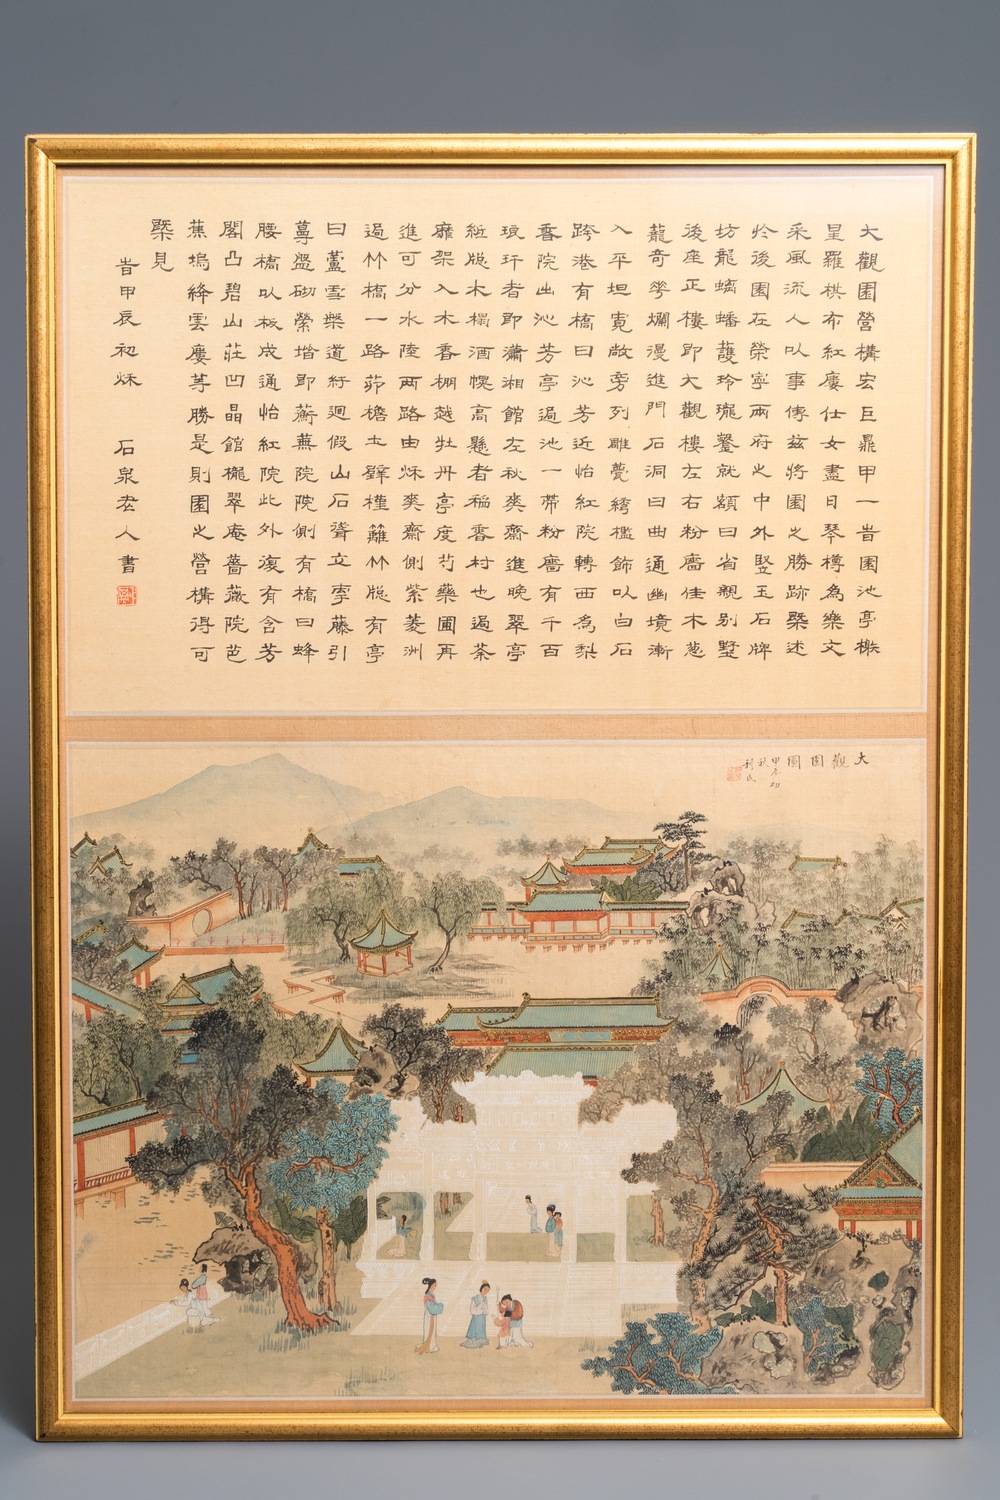 大觀園營構宏巨鼎甲一時園池亭榭
星羅棋布紅廔仕女盡日琴樽為樂文
采風流人以事傳茲將園之勝跡槩述
於後園在榮寧兩府之中外竪玉石牌
坊龍螭蟠護玲瓏鑿就額曰省親別墅
後座正樓即大觀樓左右粉牆佳木葱
蘢奇花爛漫進門石洞曰曲通幽境漸
入平坦寬敞旁列雕甍繡檻飾以白石
跨港有橋曰沁芳近怡紅院轉西為梨
香院出沁芳亭過池一帶粉牆有千百
琅玕者即瀟湘館左秋爽齋進晚翠亭
紙牕木榻酒幌高懸者稻香村也過荼
蘼架入木香棚越牡丹亭度芍藥圃再
進可分水陸兩路由秌爽齋側紫菱洲
過竹橋一路茆檐土壁槿籬竹牕有亭
曰蘆雪槩道紆迴假山石聳立牽藤引
蔓盤砌縈堦即蘅蕪院院側有橋曰蜂
腰橋以板成通怡紅院此外復有含芳
閣凸碧山莊凹晶館櫳翠庵薔薇院芭
蕉塢絳雲廔等勝是則園之營構得可
槩見
時甲辰初秌 石泉老人書
大觀園圖
甲辰初
秋